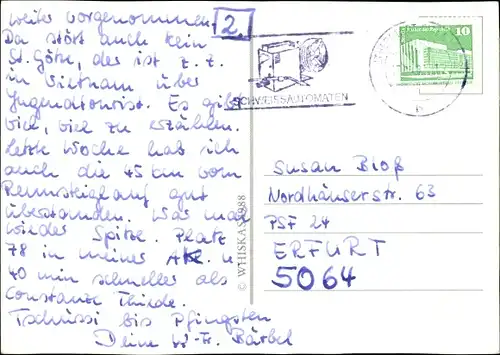 weiter vorgenommen.
2.
Da stört auch kein
St. Götz, der ist z. Z.
in Vietnam über
Jugendtourist. Es gibt
viel, viel zu erzählen.
Letzte Woche hab ich
auch die 45 km vom
Rennsteiglauf gut
überstanden. War mal
wieder Spitze. Platz
78 in meiner AK u.
40 min schneller als
Constanze Thiede.
Tschüssi bis Pfingsten
Deine Bärbel
10
SCHWEISSAUTOMATEN
b
© WHISKAS 1988
Susan Bloß
Nordhäuserstr. 63
PSF 24
ERFURT
5064